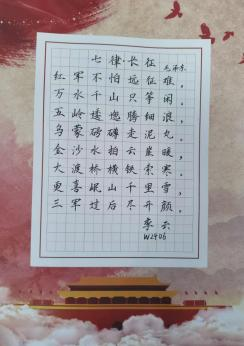 七律·长征
毛泽东
红军不怕远征难，
万水千山只等闲。
五岭逶迤腾细浪，
乌蒙磅礴走泥丸。
金沙水拍云崖暖，
大渡桥横铁索寒。
更喜岷山千里雪，
三军过后尽开颜。
李云
W2406